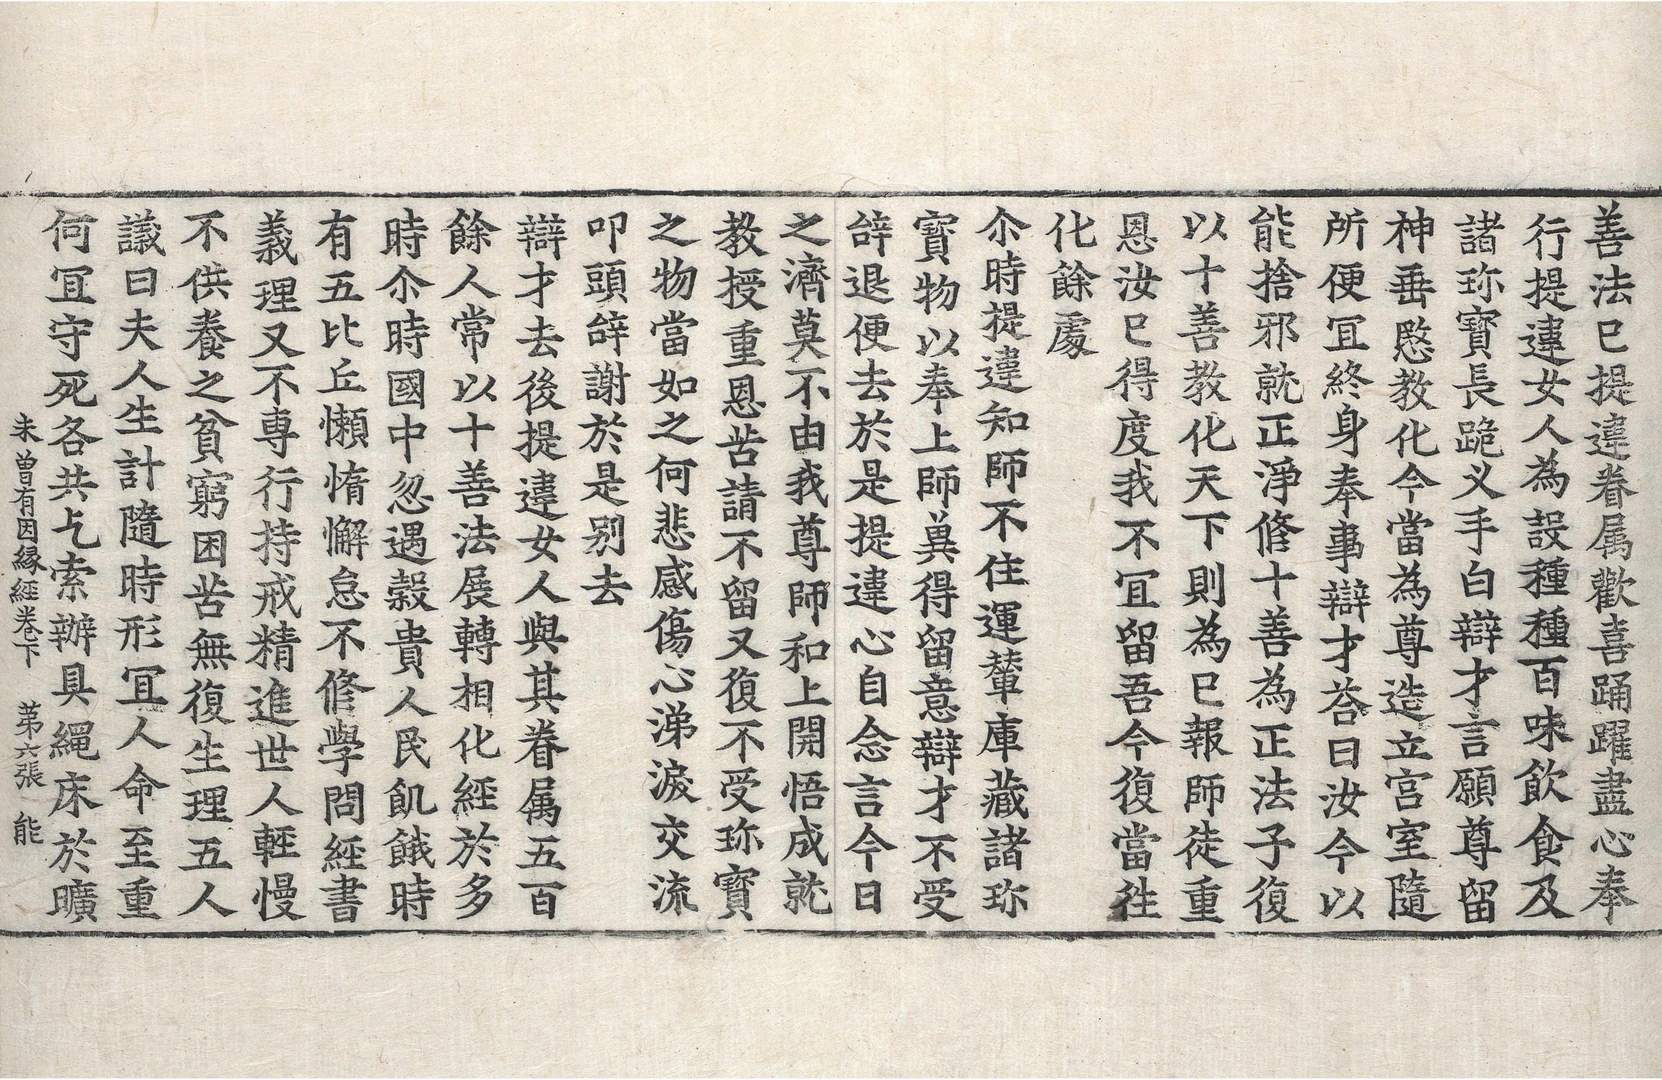 善法已提違眷属歡喜踊躍盡心奉
行提違女人為設種種百味飲食及
諸珎寶長跪义手白辯才言願尊留
神垂愍教化今當為尊造立宮室隨
所便冝終身奉事辯才荅曰汝今以
能捨邪就正淨修十善為正法子復
以十善教化天下則為已報師徒重
恩汝已得度我不冝留吾今復當往
化餘處
尒時提違知師不住運輦庫藏諸珎
寶物以奉上師兾得留意辯才不受
辝退便去於是提違心自念言今日
之濟莫不由我尊師和上開悟成就
教授重恩苦請不留又復不受珎寶
之物當如之何悲感傷心涕淚交流
叩頭辝謝於是别去
辯才去後提違女人與其眷属五百
餘人常以十善法展轉相化經於多
時尒時國中忽遇穀貴人民飢餓時
有五比丘懶惰懈怠不修學問經書
義理又不専行持戒精進世人輕慢
不供養之貧窮困苦無復生理五人
議曰夫人生計隨時形冝人命至重
何冝守死各共乞索辦具繩床於曠
未曾有因縁經卷下　苐六張　能